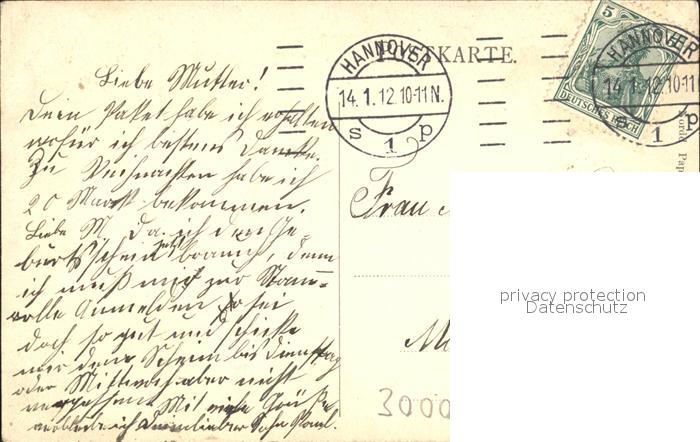 POSTKARTE.
HANNOVER
14.1.12.10-11N.
s 1 p
5
DEUTSCHES REICH
HANNOVER
14.1.12.10-11
s 1 p
Liebe Mutter!
Dein Paket habe ich erhalten
wofür ich bestens danke.
Zu Weihnachten habe ich
20 Mark bekommen.
Liebe M. Da ich den Ge-
burtsschein jetzt brauch, denn
ich muß mich zur Stamm-
rolle Anmelden. So sei
doch so gut und schicke
mir den Schein bis Dienstag
oder Mittwoch aber nicht
vergessen. Mit viele Grüße
verbleibe ich Dein lieber Sohn Paul.
Frau
privacy protection
Datenschutz
3000